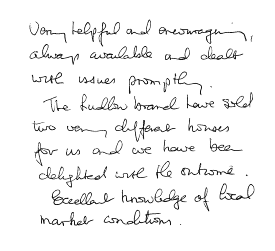 Very helpful and encouraging,
always available and dealt
with issues promptly.
The Ludlow brand have sold
two very different houses
for us and we have been
delighted with the outcome.
Excellent knowledge of local
market conditions.